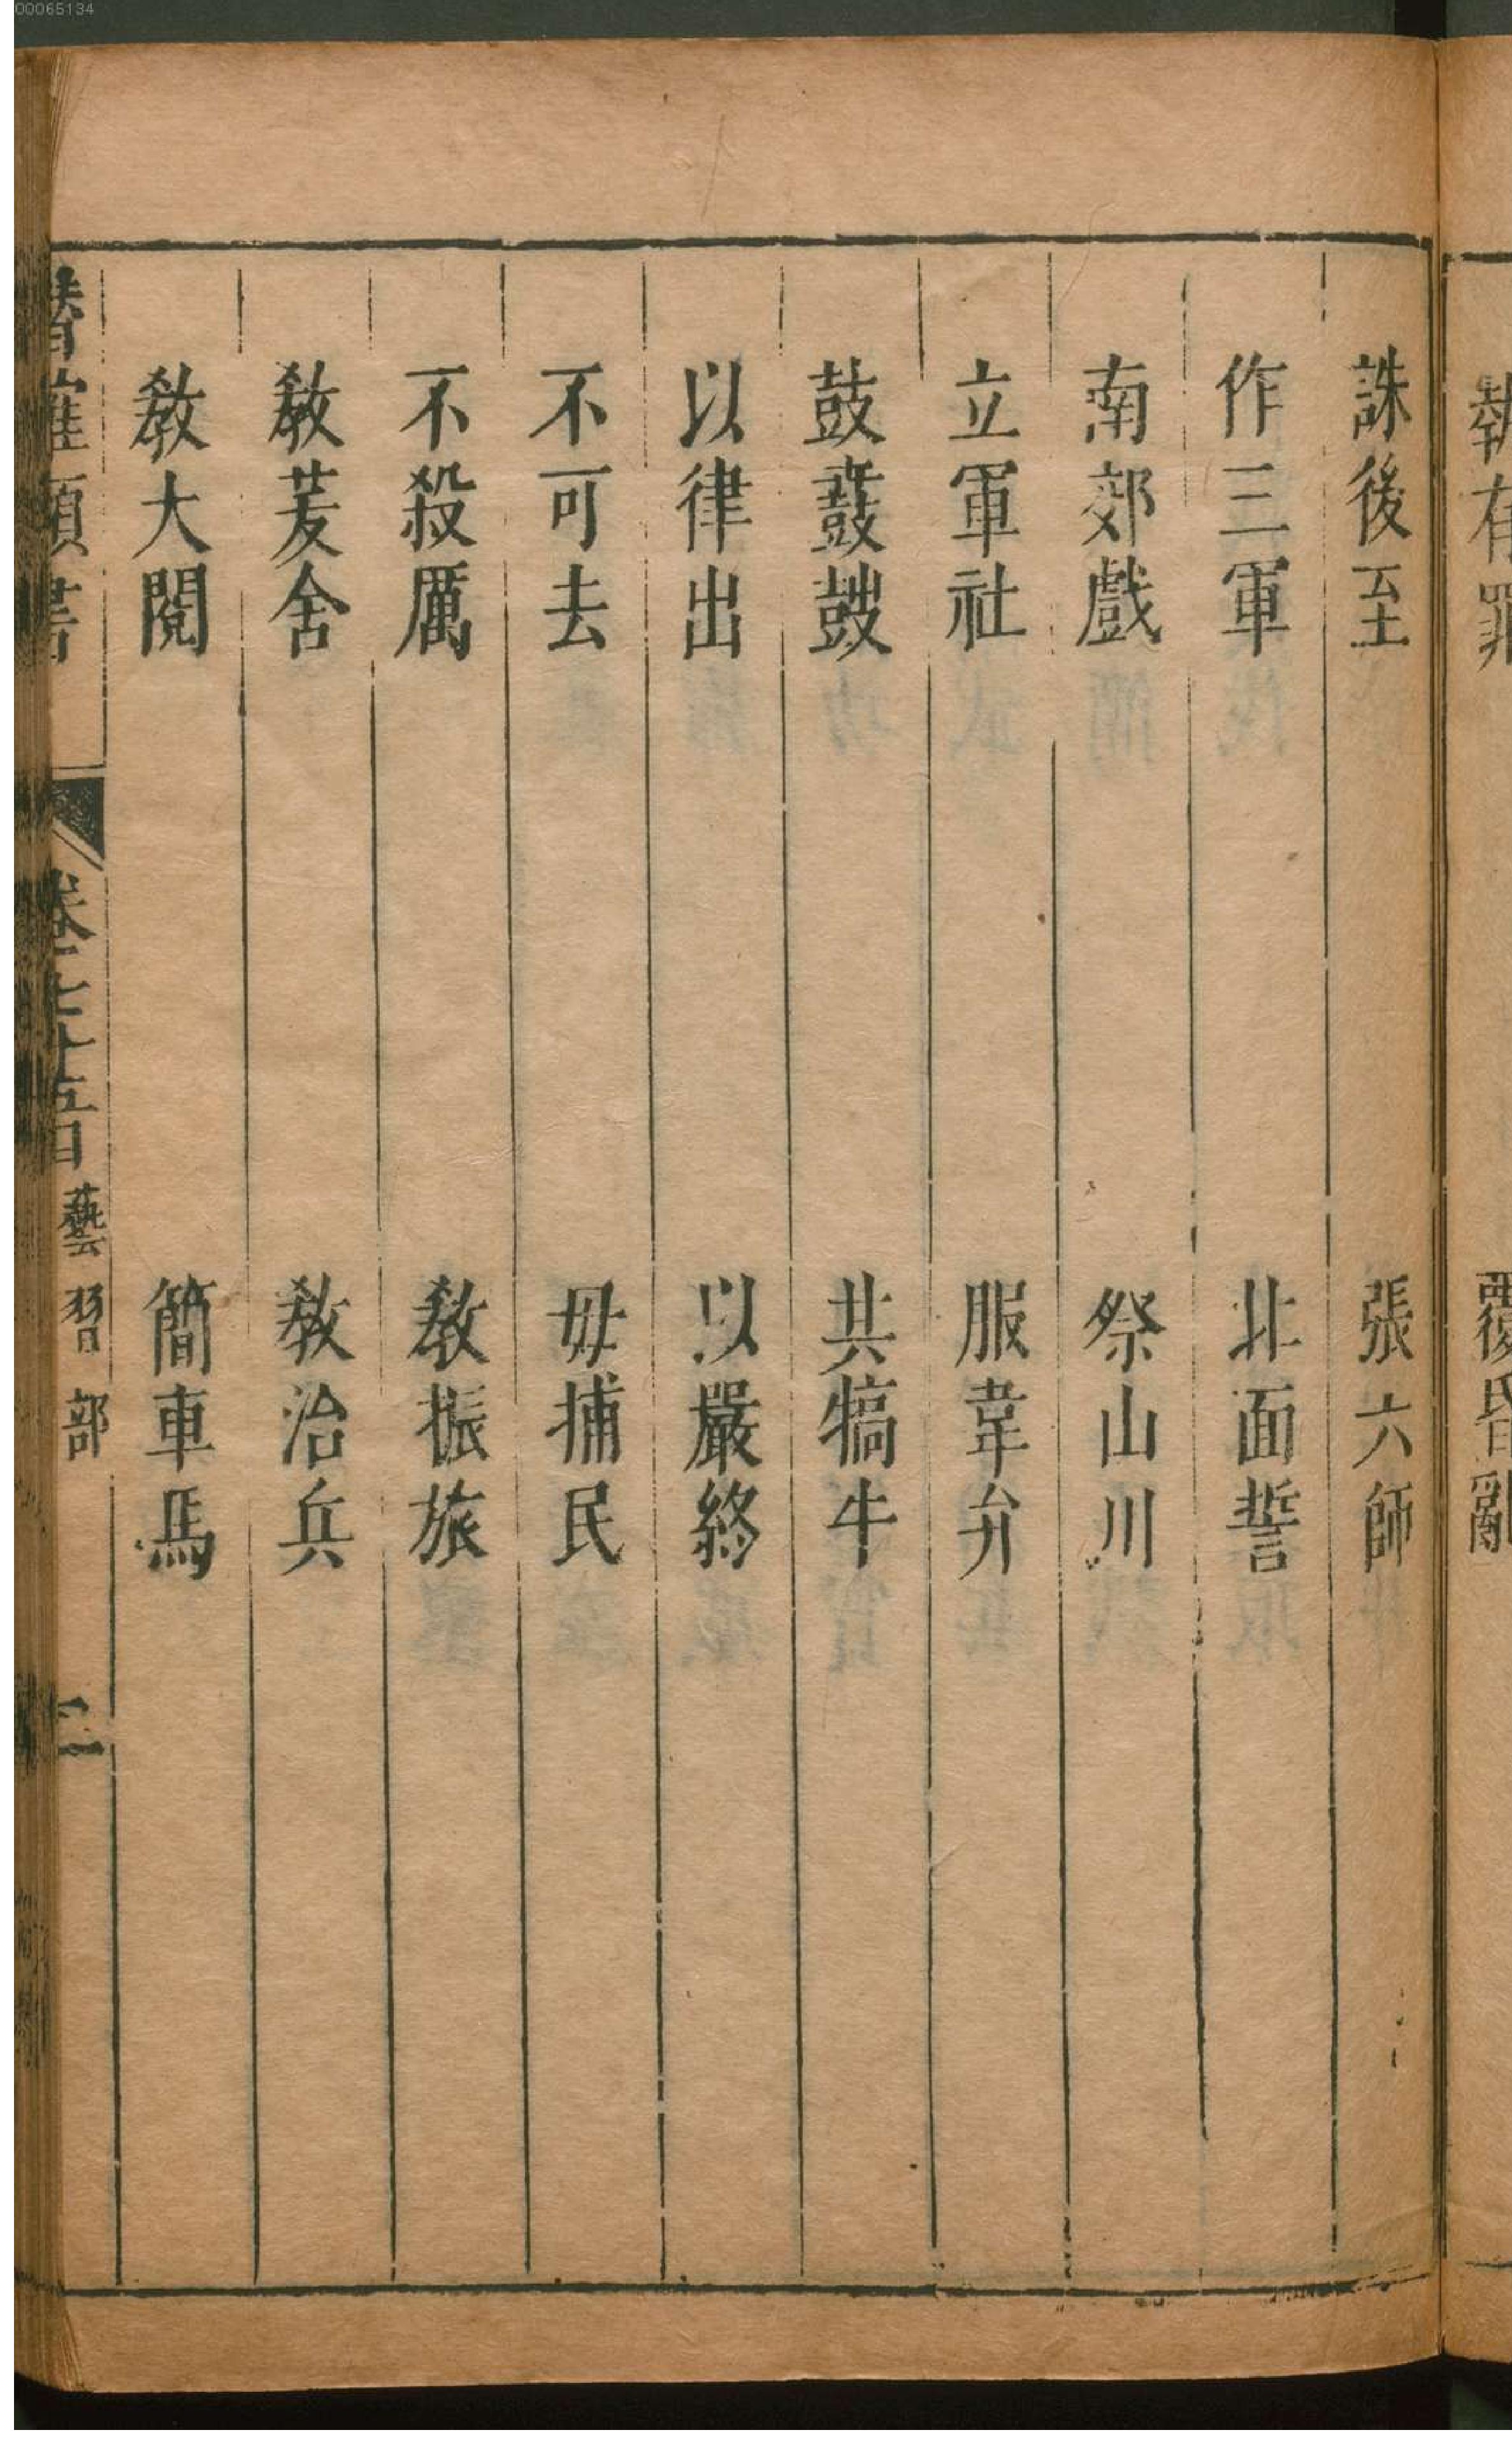 00065134
執有罪 覆昏亂
誅後至 張六師
作三軍 北面誓
南郊戲 祭山川
立軍社 服韋弁
鼓鼖鼓 共犒牛
以律出 以嚴終
不可去 毋捕民
不殺厲 教振旅
教茇舍 教治兵
教大閱 簡車馬
潛確類書 卷七十五目 藝習部 二